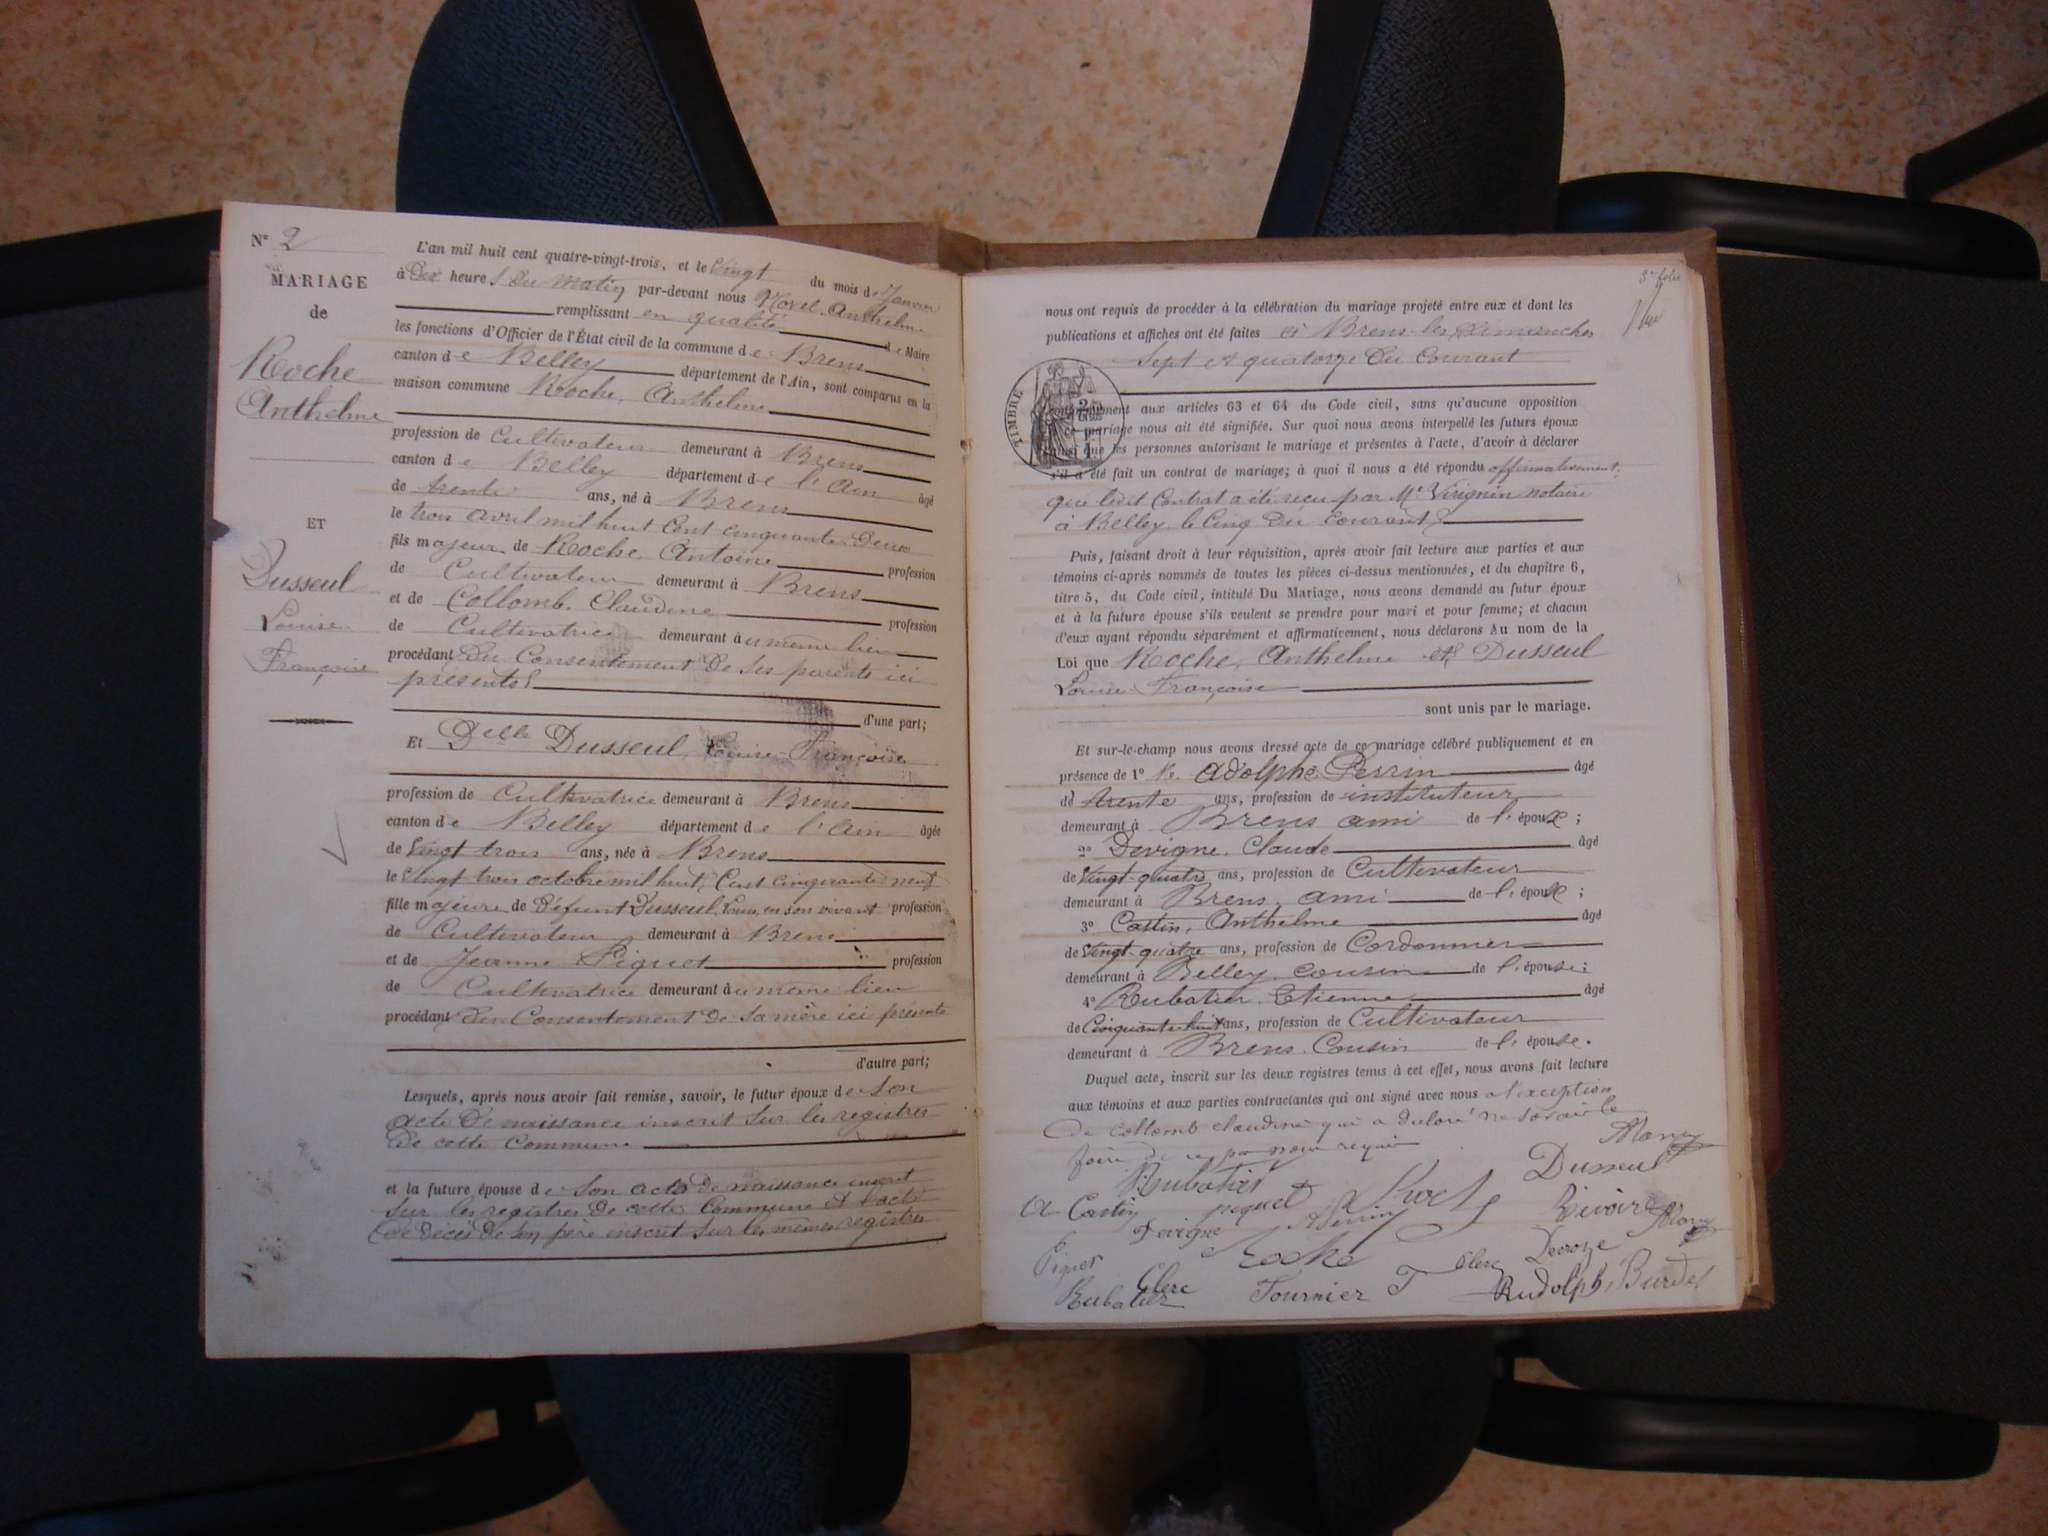 N° 2
MARIAGE
de
Roche
Anthelme
ET
Dusseul
Louise
Françoise
L'an mil huit cent quatre-vingt-trois, et le vingt du mois de Janvier
à Dix heures du matin par-devant nous Morel Anthelme
remplissant en qualité de Maire
les fonctions d'Officier de l'État civil de la commune de Brens
canton de Belley département de l'Ain, sont comparus en la
maison commune Roche, Anthelme
profession de Cultivateur demeurant à Brens
canton de Belley département de l'Ain âgé
de trente ans, né à Brens
le trois avril mil huit Cent cinquante Deux
fils majeur de Roche, Antoine profession
de Cultivateur demeurant à Brens
et de Collomb, Claudine profession
de Cultivatrice demeurant au même lieu
procédant Du Consentement De Ses parents ici
présents
d'une part;
Et Delle Dusseul, Louise-Françoise
profession de Cultivatrice demeurant à Brens
canton de Belley département de l'Ain âgée
de Vingt trois ans, née à Brens
le Vingt trois octobre mil huit Cent cinquante neuf
fille majeure de Défunt Dusseul, Louis, en son vivant profession
de Cultivateur demeurant à Brens
et de Jeanne Piquet profession
de Cultivatrice demeurant au même lieu
procédant Du Consentement De Sa mère ici présente
d'autre part;
Lesquels, après nous avoir fait remise, savoir, le futur époux de Son
acte De naissance inscrit Sur les registres
De cette Commune
et la future épouse de Son acte De naissance inscrit
Sur les registres De cette Commune et l'acte
De Décès De Son père inscrit Sur les mêmes registres
3e folio
nous ont requis de procéder à la célébration du mariage projeté entre eux et dont les
publications et affiches ont été faites à Brens les Dimanches
Sept et quatorze Du Courant
TIMBRE
conformément aux articles 63 et 64 du Code civil, sans qu'aucune opposition
ce mariage nous ait été signifiée. Sur quoi nous avons interpellé les futurs époux
ainsi que les personnes autorisant le mariage et présentes à l'acte, d'avoir à déclarer
s'il a été fait un contrat de mariage; à quoi il nous a été répondu affirmativement;
que ledit Contrat a été reçu par Me Virignin notaire
à Belley le Cinq Du Courant
Puis, faisant droit à leur réquisition, après avoir fait lecture aux parties et aux
témoins ci-après nommés de toutes les pièces ci-dessus mentionnées, et du chapitre 6,
titre 5, du Code civil, intitulé Du Mariage, nous avons demandé au futur époux
et à la future épouse s'ils veulent se prendre pour mari et pour femme; et chacun
d'eux ayant répondu séparément et affirmativement, nous déclarons Au nom de la
Loi que Roche, Anthelme et Dusseul
Louise-Françoise
sont unis par le mariage.
Et sur-le-champ nous avons dressé acte de ce mariage célébré publiquement et en
présence de 1° Adolphe Perrin âgé
de trente ans, profession de instituteur
demeurant à Brens ami de l'époux;
2° Devigne, Claude âgé
de Vingt-quatre ans, profession de Cultivateur
demeurant à Brens, ami de l'époux;
3° Castin, Anthelme âgé
de Vingt-quatre ans, profession de Cordonnier
demeurant à Belley, cousin de l'épouse;
4° Rubatier, Etienne âgé
de Cinquante-huit ans, profession de Cultivateur
demeurant à Brens, Cousin de l'épouse.
Duquel acte, inscrit sur les deux registres tenus à cet effet, nous avons fait lecture
aux témoins et aux parties contractantes qui ont signé avec nous à l'exception
De Collomb Claudine qui a déclaré ne savoir le
faire De ce par nous requis
Rubatier Dusseul
Castin piquet Rivoire
Devigne APerrin
Piquet Roche Clerc Decroze
Rubatier Clerc Fournier T Rudolph, Burdet